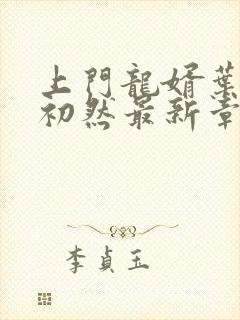 上門龍婿葉
初然最新章
李貞玉